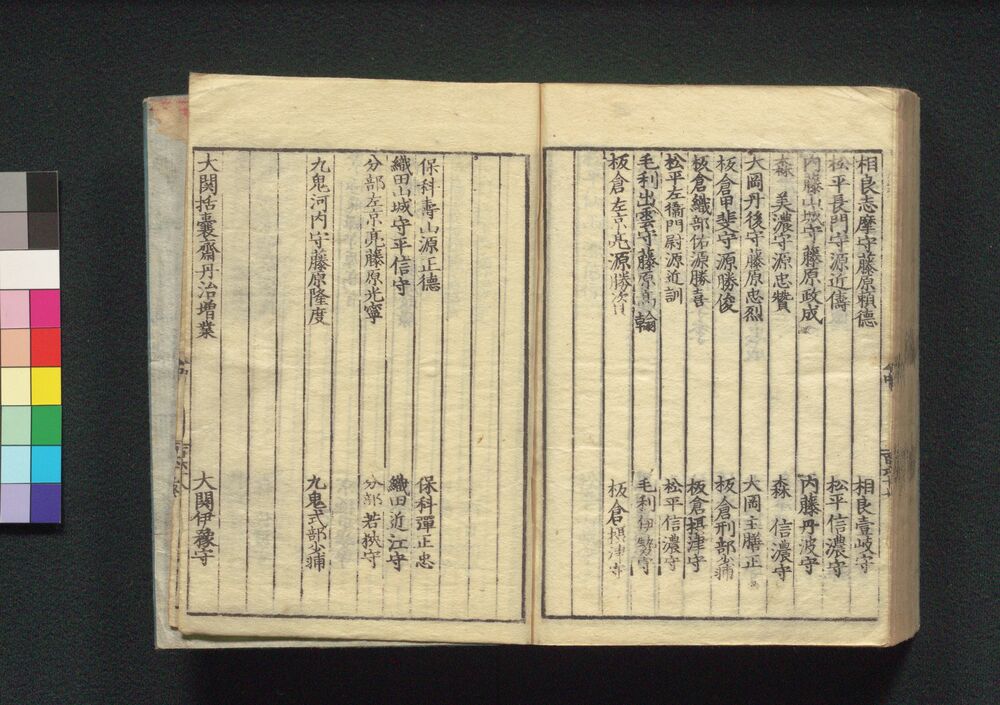 相良志摩守藤原頼徳　相良壱岐守
松平長門守源近儔　松平信濃守
内藤山城守藤原政成　内藤丹波守
森　美濃守源忠贊　森　信濃守
大岡丹後守藤原忠烈　大岡主膳正
板倉甲斐守源勝俊　板倉刑部少輔
板倉織部佑源勝喜　板倉摂津守
松平左衞門尉源近訓　松平信濃守
毛利出雲守藤原高翰　毛利伊勢守
板倉左京亮源勝　板倉摂津守
保科壽山源正德　保科彈正忠
織田山城守平信守　織田近江守
分部左京亮藤原光寧　分部若狹守
九鬼河内守藤原隆度　九鬼式部少輔
大関括囊齋丹治増業　大関伊豫守